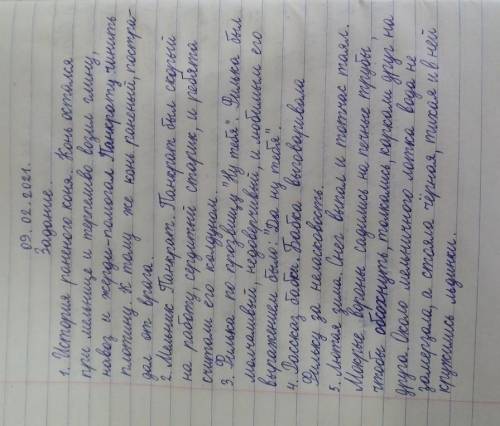 09.02.2021.
Задание.
1. История раненого коня. Конь остался
при мельнице и терпеливо возил глину,
навоз и жерди-помогал Панкрату чинить
плотину. К тому же конь раненый, постра-
дал от врага.
2. Мельник Панкрат. Панкрат был скорый
на работу, сердитый старик, и ребята
считали его колдуном.
3. Филька по прозвищу "Ну тебя". Филька был
молчаливый, недоверчивый, и любимым его
выражением было: "Да ну тебя".
4. Рассказ бабки. Бабка выговаривала
Фильку за неласковость.
5. Лютая зима. Снег выпал и тотчас таял.
Мокрые вороны садились на печные трубы,
чтобы обсохнуть, толкались, каркали друг на
друга. Около мельничного лотка вода не
замерзала, а стояла чёрная, тихая и в ней
кружились льдинки.